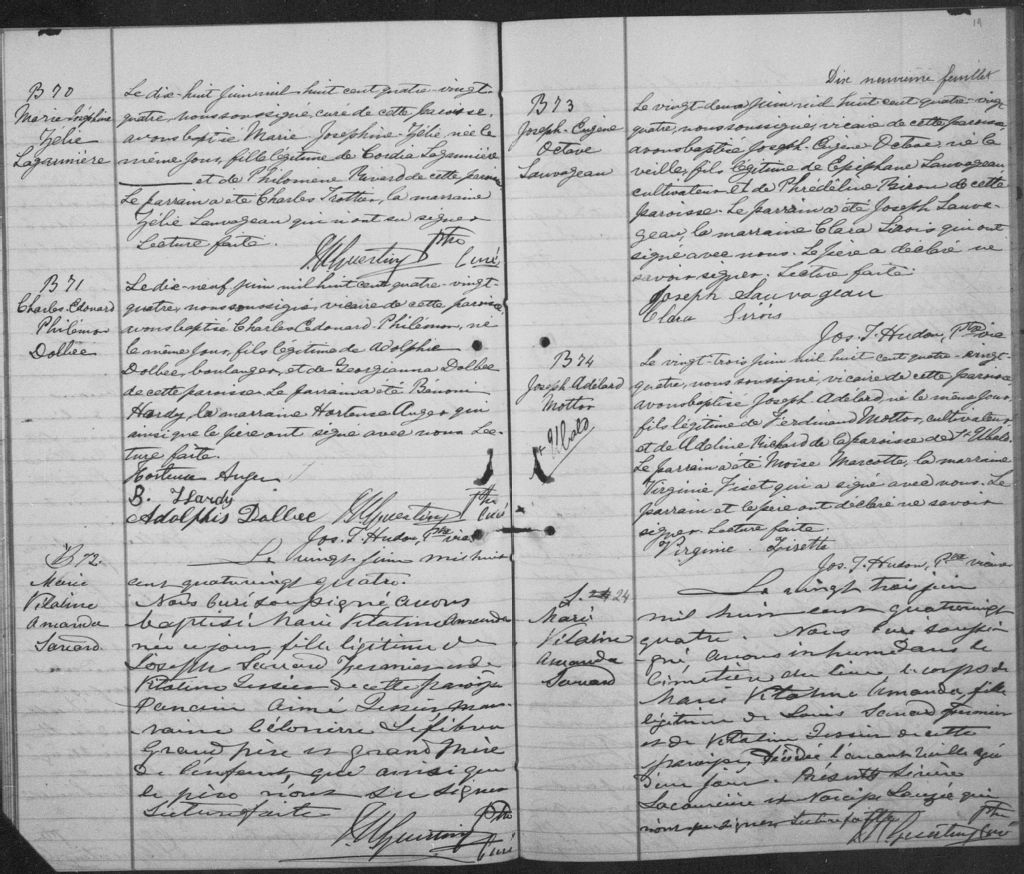 B 70
Marie Joséphine
Zélie
Laganière
Le dix-huit juin mil-huit cent quatre-vingt-
quatre, nous soussigné, curé de cette paroisse,
avons baptisé Marie Josephine-Zélie, née le
même jour, fille légitime de Laganière
et de Philomène Rivard de cette paroisse
Le parrain a été Charles Trottier, la marraine
Zélie Sauvageau qui n'ont su signer
Lecture faite.
Ptre
Curé
B 71
Charles Edouard
Philémon
Dolbec
Le dix-neuf juin mil huit cent quatre-vingt-
quatre, nous soussigné, vicaire de cette paroisse,
avons baptisé Charles Edouard-Philémon, né
le même jour, fils légitime de Adolphe
Dolbec, boulanger, et de Georgianna Dolbec
de cette paroisse. Le parrain a été Bénoni
Hardy, la marraine Hortense Auger, qui
ainsi que le père ont signé avec nous. Lec-
ture faite.
Hortense Auger
B. Hardy
Adolphis Dolbec
Ptre
Curé
Jos. T. Hudon, Ptre vic
B. 72.
Marie
Vitaline
Amanda
Savard
Le vingt juin mil huit
cent quatrevingt quatre.
Nous curé soussigné avons
baptisé Marie Vitaline Amanda
née ce jour fille légitime de
Joseph Savard fermier et de
Vitaline Tessier de cette paroisse
Parrain Aimé Tessier mar-
raine Célanire Léfebvre
Grand père et grand mère
de l'enfant, qui ainsi que
le père n'ont su signer
Lecture faite
Ptre
Curé
19
Dix neuvieme feuillet
B 73
Joseph-Eugène
Octave
Sauvageau
Le vingt deux juin mil huit cent quatre-vingt
quatre, nous soussigné, vicaire de cette paroisse,
avons baptisé Joseph Eugène Octave, né la
veille, fils légitime de Epiphane Sauvageau
cultivateur et de de cette
paroisse. Le parrain a été Joseph Sauva-
geau, la marraine Clara Sirois qui ont
signé avec nous. Le père a déclaré ne
savoir signer. Lecture faite.
Joseph Sauvageau
Clara Sirois
Jos. T. Hudon, Ptre vic
B 74
Joseph Adélard
Mottor
St Ubald
Le vingt-trois juin mil huit cent quatre-vingt-
quatre, nous soussigné, vicaire de cette paroisse,
avons baptisé Joseph Adélard, né le même jour,
fils légitime de Ferdinand Mottor, cultivateur,
et de Adeline Richard de la paroisse de St Ubald.
Le parrain a été Moïse Marcotte, la marraine
Virginie Fiset qui a signé avec nous. Le
parrain et le père ont déclaré ne savoir
signer. Lecture faite.
Virginie. Fisette
Jos. T. Hudon, Ptre vicaire
S. 24
Marie
Vitaline
Amanda
Savard
Le vingt trois juin
mil huit cent quatrevingt
quatre. Nous curé soussi-
gné avons inhumé dans le
Cimetière du lieu, le corps de
Marie Vitaline Amanda, fille
légitime de Louis Savard fermier
et de Vitaline Tessier de cette
paroisse, décédée l'avant veille agée
d'un jour. Présents
et Narcisse qui
n'ont pu signer. Lecture faite
Ptre
Curé